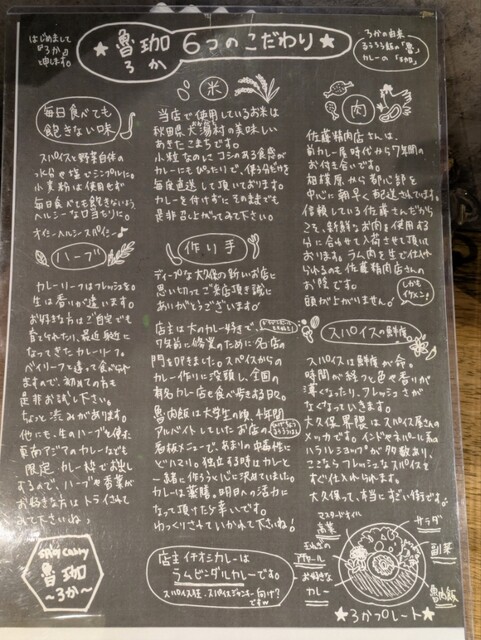 はじめまして
『ろか』と
申します。
★ 魯珈 6つのこだわり ★
ろか
ろかの由来
るうろう飯の「魯」
カレーの「珈」
毎日食べても
飽きない味
スパイスと野菜自体の
水分や塩でシンプルに。
小麦粉は使用せず
毎日食べても飽きないよう
ヘルシーな口当たりに。
オイシーヘルシースパイシー♪
ハーブ
カレーリーフはフレッシュなものを
生は香りが違います。
お好きな方はご自宅でも
育てられたり、最近身近に
なってきたカレーリーフ。
ベイリーフと違って食べられ
ますので、初めての方も
是非お試し下さい。
ちょっと渋みがあります。
他にも、生のハーブを使った
東南アジアのカレーなども
限定カレー枠でお出し
するので、ハーブや香菜が
お好きな方はトライされて
みて下さいね♪
SPICY CURRY
魯珈
～ろか～
米
当店で使用しているお米は
秋田県大潟村の美味しい
あきたこまちです。
小粒なのにコシのある食感が
カレーにもぴったりで、使う分だけを
毎度直送して頂いております。
カレーを付けずにそのままでも
是非召し上がってみて下さい。
作り手
ディープな大久保の新しいお店に
思い切ってご来店頂き誠に
ありがとうございます。
店主は大のカレー好きで、
7年前に修業のために名店の
門を叩きました。スパイスからの
カレー作りに没頭し、全国の
有名カレー店を食べ歩きする日々。
魯肉飯は大学生の頃、4年間
アルバイトしていたお店の
看板メニューで、あまりの中毒性に
どハマりし、独立する時はカレーと
一緒に作ろうと心に決めていました。
カレーは薬膳。明日への活力に
なって頂けたら幸いです。
ゆっくりされていかれて下さいね！
店主イチオシカレーは
ラムビンダルカレーです。
スパイス狂・スパイスジャンキー向け？
ですw
肉
佐藤精肉店さんは、
前カレー屋時代から7年間の
お付き合いです。
相模原から都心部を
中心に朝早く配送されています。
信頼している佐藤さんだから
こそ、新鮮なお肉を使用する
分に合わせて入荷させて頂いて
おります。ラム肉を生で仕入れ
られるのも佐藤精肉店さんの
お陰です。
頭が上がりません。
しかも
イケメン！
スパイスの鮮度
スパイスは鮮度が命。
時間が経つと色や香りが
薄くなったり、フレッシュさが
なくなっていきます。
大久保界隈はスパイス屋さんの
メッカです。インドやネパール系の
ハラルショップが多数あり、
ここならフレッシュなスパイスを
すぐ仕入れられます。
大久保って、本当にすごい街です。
マスタードオイル
高菜
玉ねぎの
アチャール
お好きな
カレー
サラダ
副菜
魯肉飯
★ろかプレート★